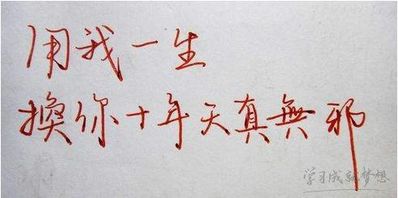 用我一生
換你十年天真無邪
学习成就梦想